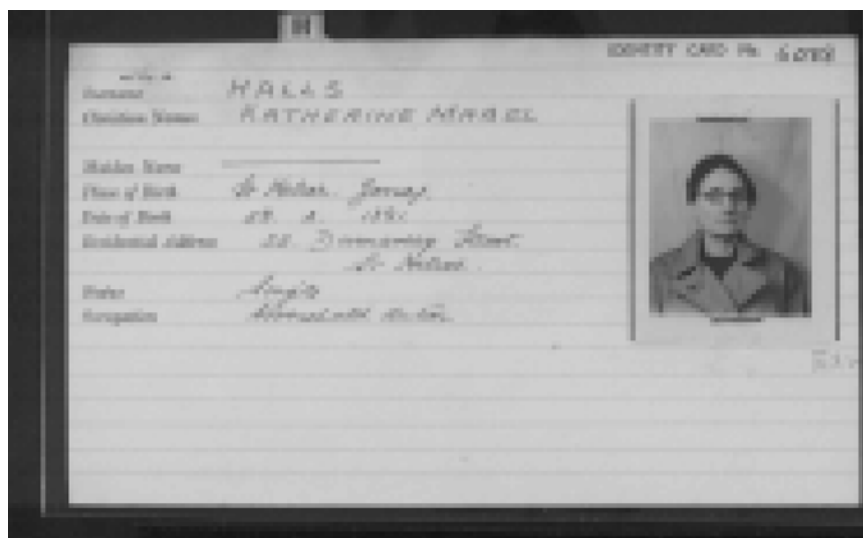 IDENTITY CARD No. 6098
Surname HALLS
Christian Names KATHERINE MABEL
Maiden Name
Place of Birth St Helier. Jersey.
Date of Birth
Residential Address Street.
St Helier.
Status Single
Occupation Household duties